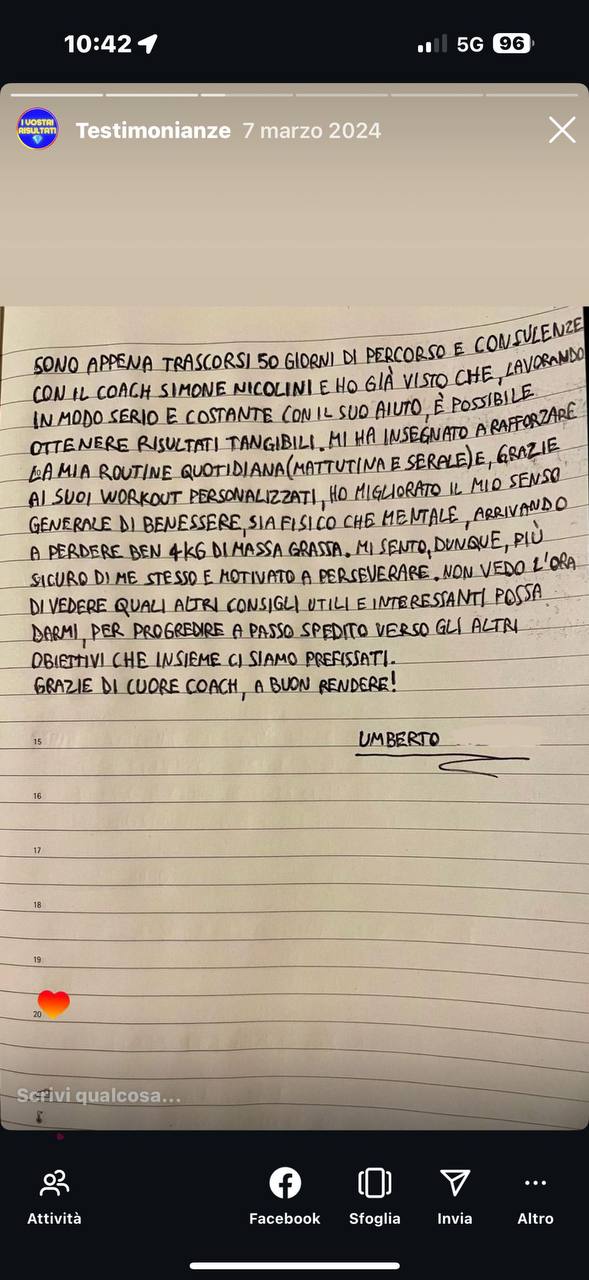 10:42
5G 96
I VOSTRI
RISULTATI
Testimonianze 7 marzo 2024
SONO APPENA TRASCORSI 50 GIORNI DI PERCORSO E CONSULENZE
CON IL COACH SIMONE NICOLINI E HO GIÀ VISTO CHE, LAVORANDO
IN MODO SERIO E COSTANTE CON IL SUO AIUTO, È POSSIBILE
OTTENERE RISULTATI TANGIBILI. MI HA INSEGNATO A RAFFORZARE
LA MIA ROUTINE QUOTIDIANA (MATTUTINA E SERALE) E, GRAZIE
AI SUOI WORKOUT PERSONALIZZATI, HO MIGLIORATO IL MIO SENSO
GENERALE DI BENESSERE, SIA FISICO CHE MENTALE, ARRIVANDO
A PERDERE BEN 4KG DI MASSA GRASSA. MI SENTO, DUNQUE, PIÙ
SICURO DI ME STESSO E MOTIVATO A PERSEVERARE. NON VEDO L'ORA
DI VEDERE QUALI ALTRI CONSIGLI UTILI E INTERESSANTI POSSA
DARMI, PER PROGREDIRE A PASSO SPEDITO VERSO GLI ALTRI
OBIETTIVI CHE INSIEME CI SIAMO PREFISSATI.
GRAZIE DI CUORE COACH, A BUON RENDERE!
UMBERTO
15
16
17
18
19
20
Scrivi qualcosa...
Attività Facebook Sfoglia Invia Altro